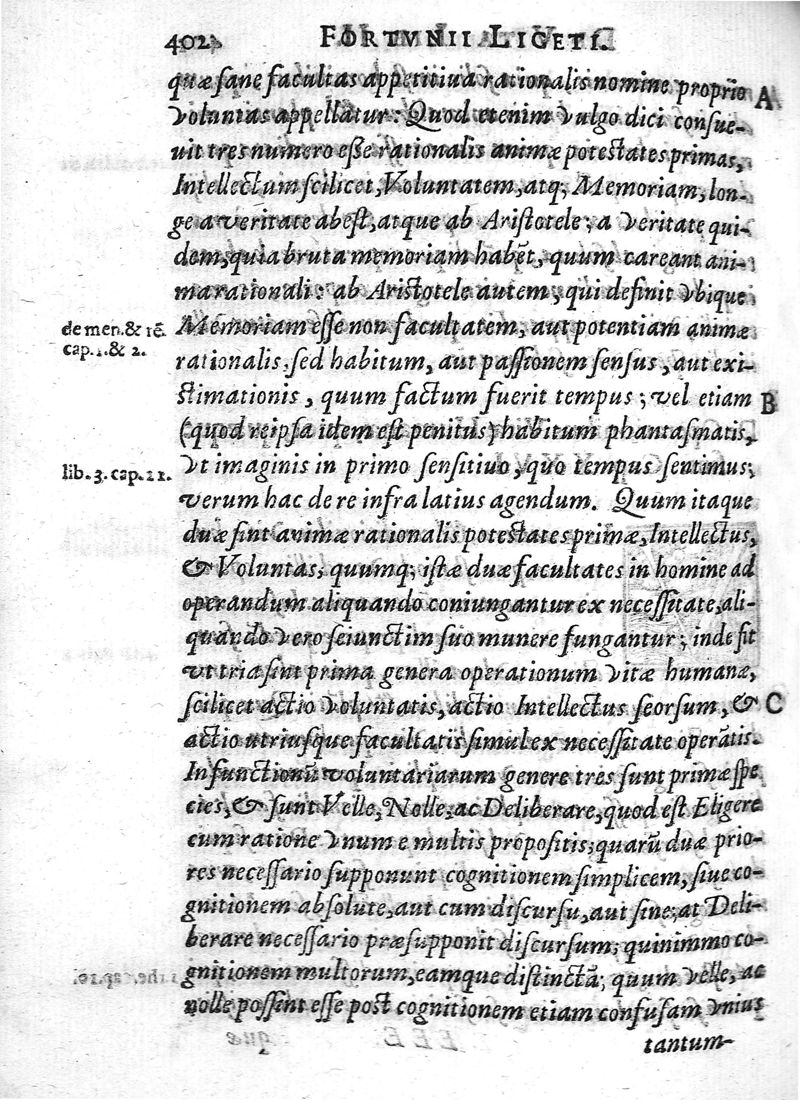 402 FORTVNII LICETI.
quæ sane facultas appetitiua rationalis nomine proprio A
Voluntas appellatur: Quod etenim vulgo dici consue-
uit tres numero esse rationalis animæ potestates primas,
Intellectum scilicet, Voluntatem, atq; Memoriam, lon-
ge a veritate abest, atque ab Aristotele; a veritate qui-
dem, quia bruta memoriam habēt, quum careant ani-
ma rationali: ab Aristotele autem, qui definit vbique
de mem. & rē. Memoriam esse non facultatem, aut potentiam animæ
cap. 1. & 2. rationalis, sed habitum, aut passionem sensus, aut exi-
stimationis, quum factum fuerit tempus; vel etiam B
(quod reipsa idem est penitus) habitum phantasmatis,
lib. 3. cap. 21. vt imaginis in primo sensitiuo, quo tempus sentimus;
verum hac de re infra latius agendum. Quum itaque
duæ sint animæ rationalis potestates primæ, Intellectus,
& Voluntas; quumq; istæ duæ facultates in homine ad
operandum aliquando coniungantur ex necessitate, ali-
quando vero seiunctim suo munere fungantur; inde fit
vt tria sint prima genera operationum vitæ humanæ,
scilicet actio voluntatis, actio Intellectus seorsum, & C
actio utriusque facultatis simul ex necessitate operātis.
In functionū voluntariarum genere tres sunt primæ spe
cies, & sunt Velle, Nolle, ac Deliberare, quod est Eligere
cum ratione vnum e multis propositis; quarū duæ prio-
res necessario supponunt cognitionem simplicem, siue co-
gnitionem absolute, aut cum discursu, aut sine; at Deli-
berare necessario præsupponit discursum; quinimmo co-
gnitionem multorum, eamque distinctā; quum velle, ac
nolle possent esse post cognitionem etiam confusam vnius
tantum-